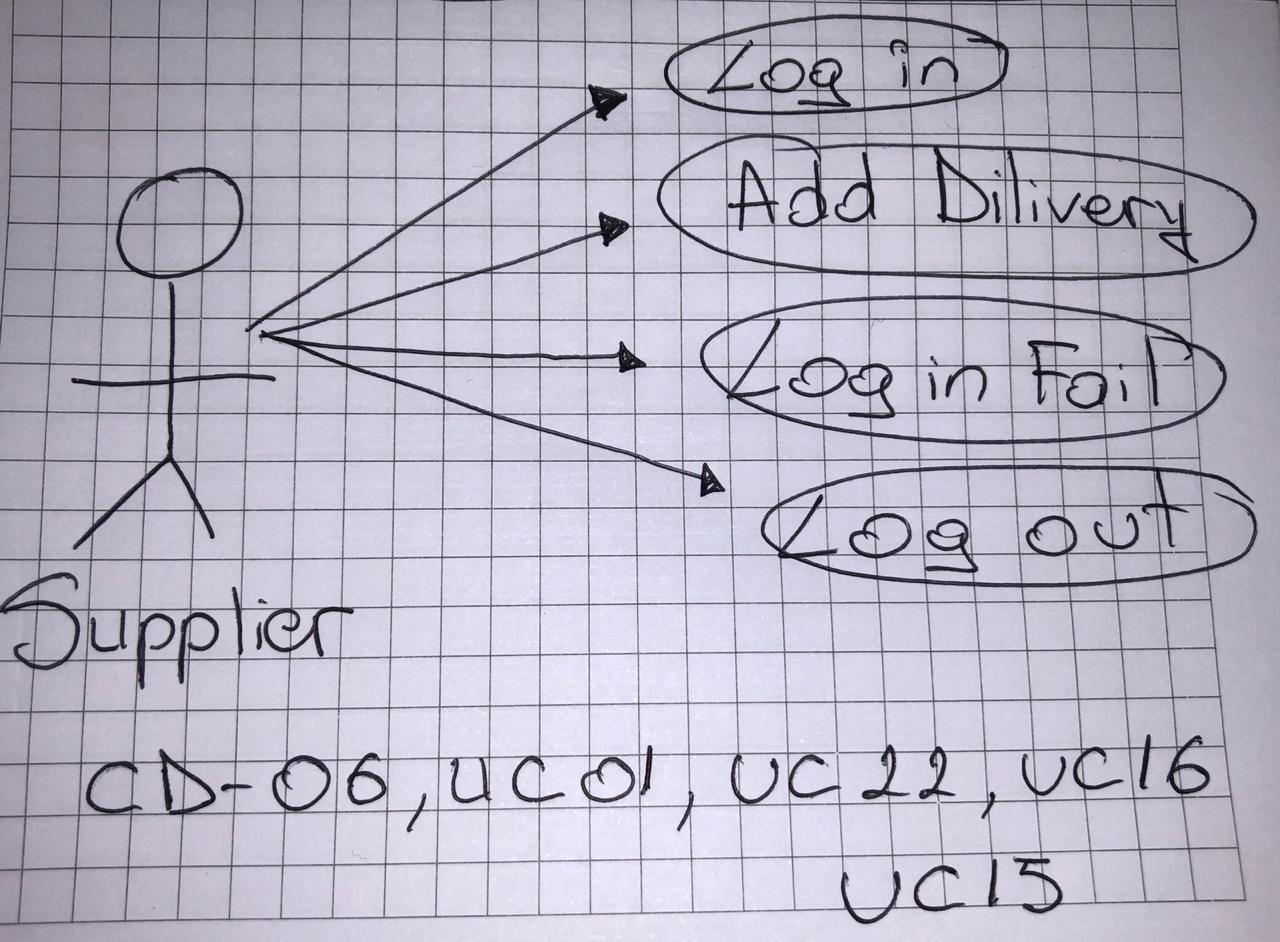 Log in
Add Dilivery
Log in Fail
Log out
Supplier
CD-06, UC01, UC22, UC16
UC15